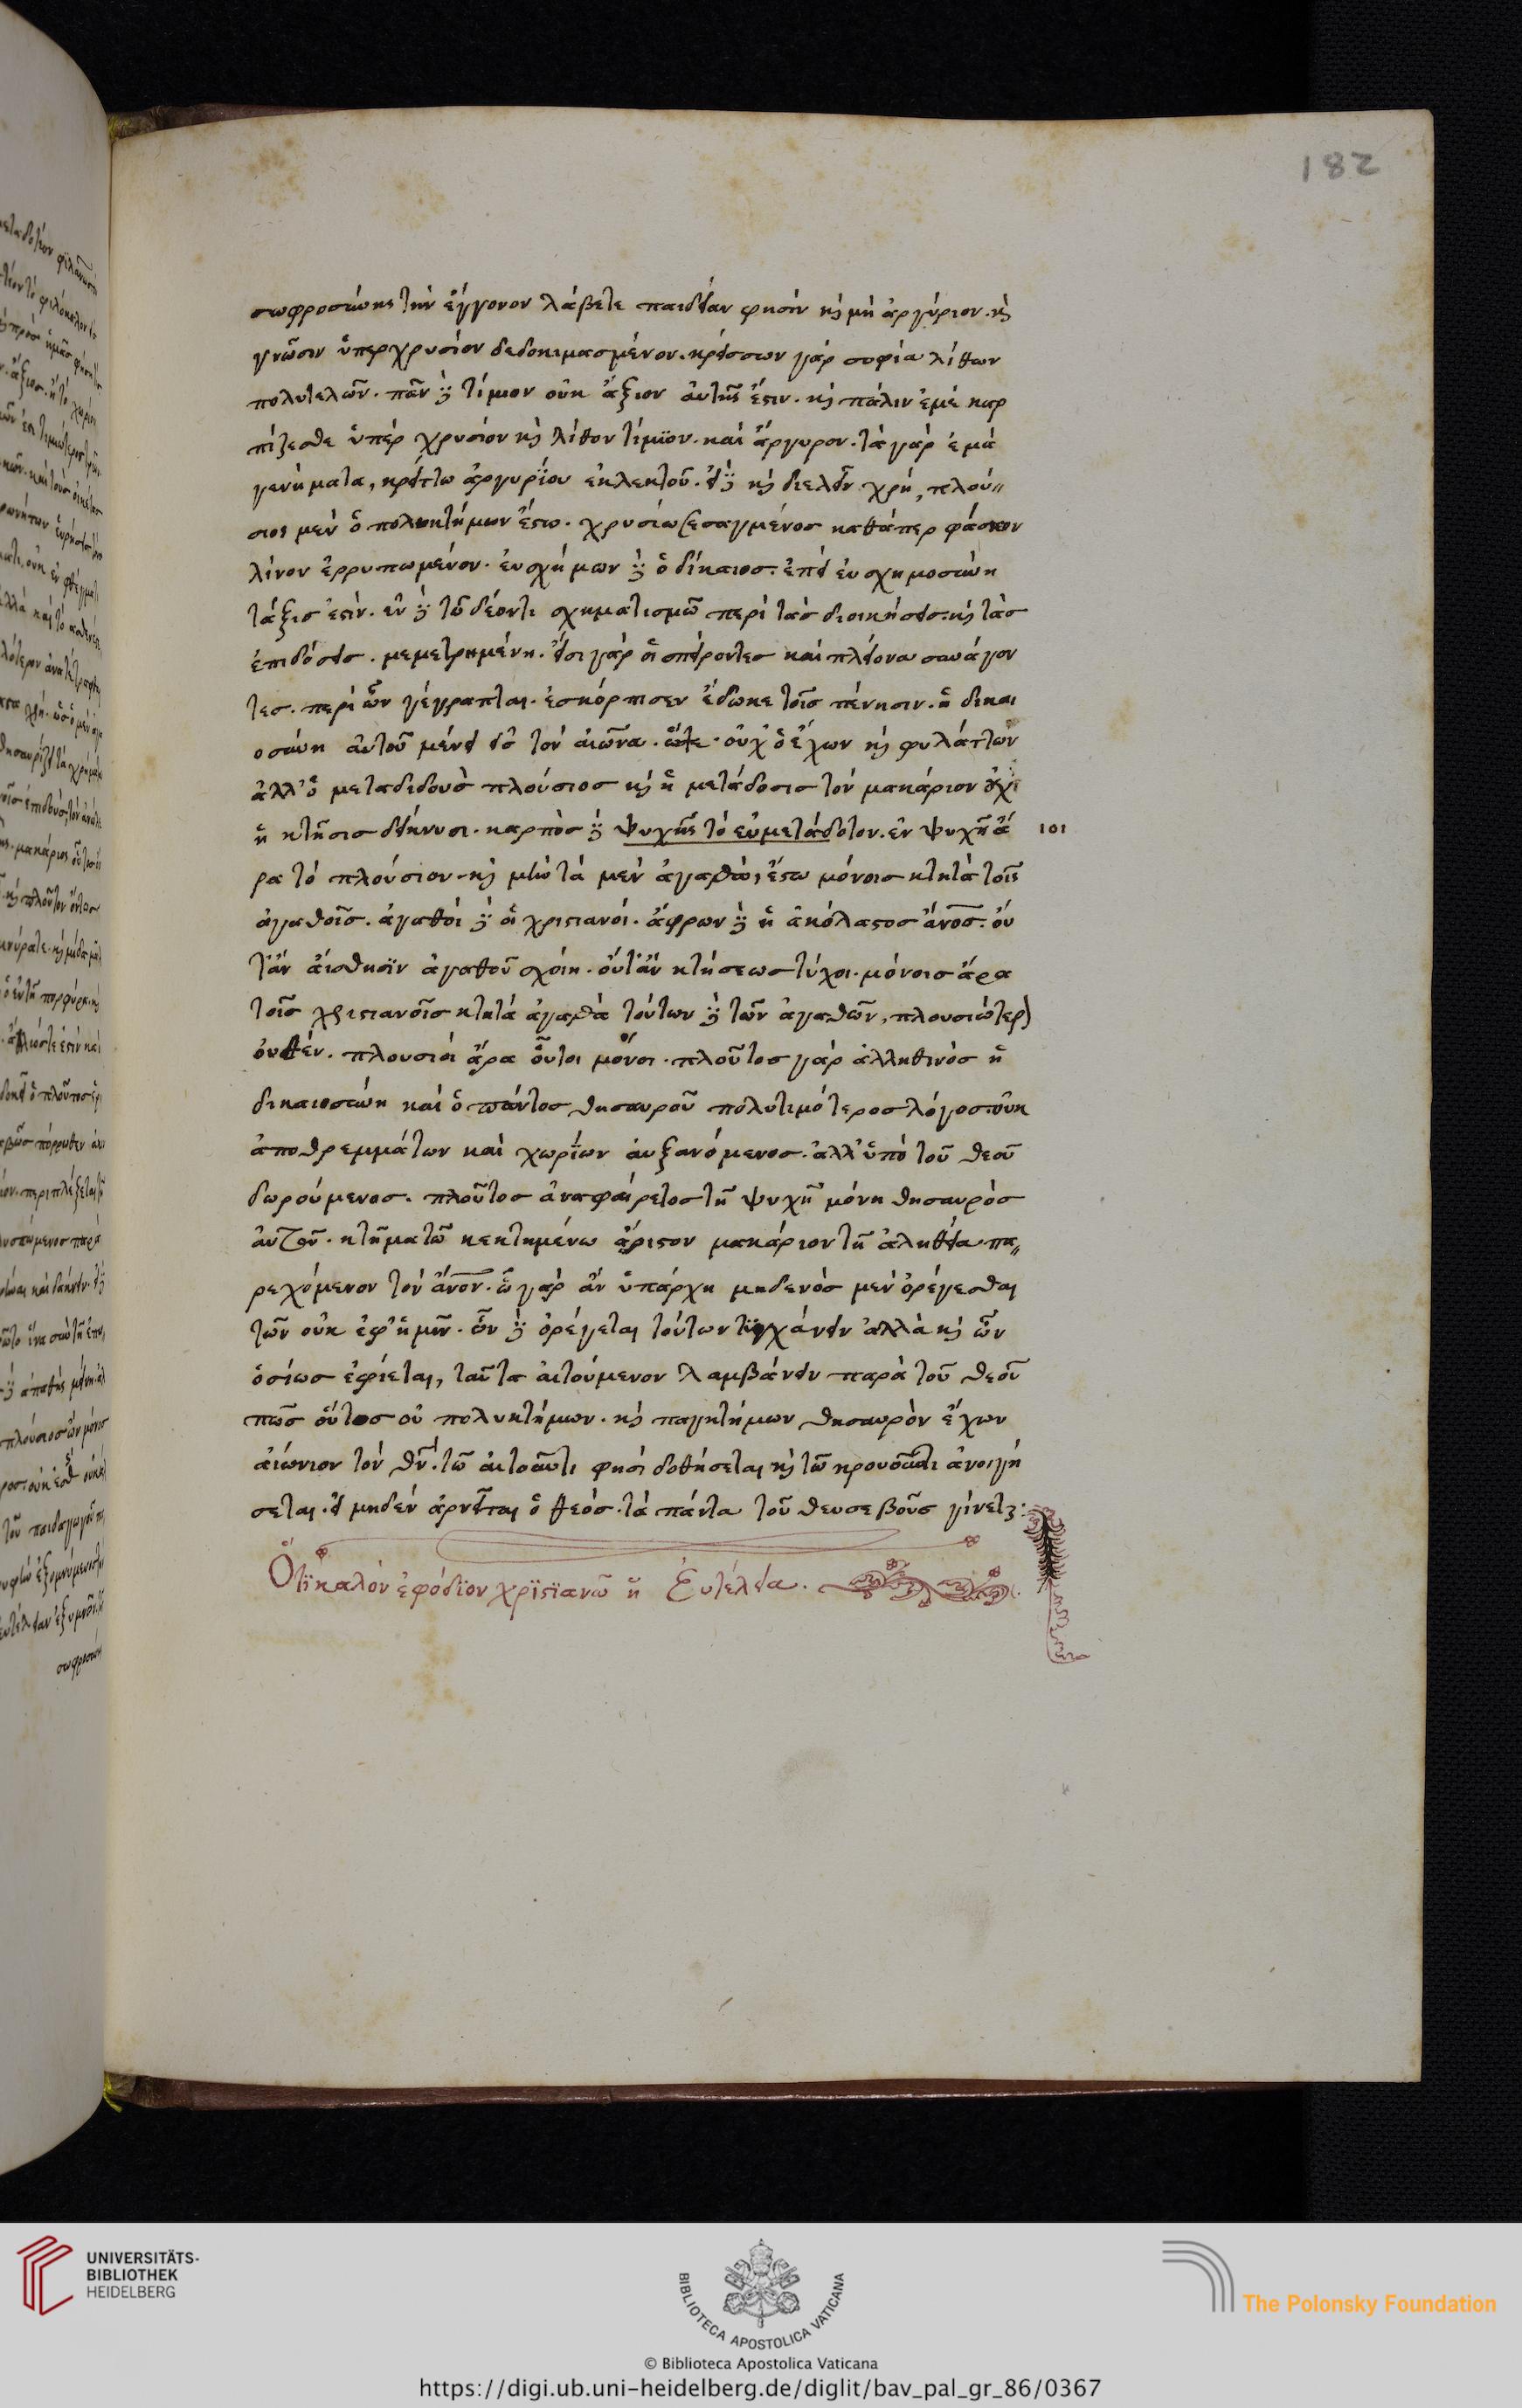 182
σωφροσύνης τὴν ἔγγονον λάβετε παιδείαν φησὶν κỳ μὴ ἀργύριον. κỳ
γνῶσιν ὑπερχρυσίον δεδοκιμασμένον. κρείσσων γὰρ σοφία λίθων
πολυτελῶν. πᾶν δὲ τίμιον οὐκ ἄξιον ἀυτῆς ἐστιν. κỳ πάλιν ἐμὲ καρ
πίζεσθε ὑπὲρ χρυσίον κỳ λίθον τίμϊον. καὶ ἄργυρον. τὰ γὰρ ἐμὰ
γενήματα, κρείττω ἀργυρΐου ἐκλεκτοῦ. εἰ δὲ κỳ διελεῖν χρὴ, πλού
σιος μὲν ὁ πολυκτήμων ἔστω. χρυσίω σεσαγμένος καθάπερ φάσκον
λίνον ἐρρυπωμένον. ἐυσχήμων δὲ ὁ δίκαιος. ἐπεὶ ἐυσχημοσύνη
τάξις ἐστὶν. ἐν δὲ τῶ δέοντι σχηματισμῶ περὶ τὰς διοικήσεις. κỳ τὰς
ἐπιδόσεις. μεμετρημένη. εἰσὶ γὰρ οἱ σπείροντες καὶ πλείονα συνάγον
τες. περὶ ὧν γέγραπται. ἐσκόρπισεν ἔδωκε τοῖς πένησιν. ἡ δικαι
οσύνη αὐτοῦ μένει εἰς τὸν αἰῶνα. ὥστε. οὐχ ὁ ἔχων κỳ φυλάττων
ἀλλ' ὁ μεταδιδοὺς πλούσιος κỳ ἡ μετάδοσις τὸν μακάριον οὐχὶ
ἡ κτῆσις δείκνυσι. καρπὸς δὲ ψυχῆς τὸ εὐμετάδοτον. ἐν ψυχῆ ἄ 101
ρα τὸ πλούσιον. κỳ μὴν τὰ μὲν ἀγαθὰ, ἔστω μόνοις κτητὰ τοῖς
ἀγαθοῖς. ἀγαθοὶ δὲ οἱ χριστιανοὶ. ἄφρων δὲ ἢ ἀκόλαστος ἄνος. οὐ
τ' ἂν ἀίσθησϊν ἀγαθοῦ σχοίη. οὔτ' ἂν κτήσεως τύχοι. μόνοις ἄρα
τοῖς χριστιανοῖς κτητὰ ἀγαθὰ τούτων δὲ τῶν ἀγαθῶν, πλουσιώτερον
ὀυθέν. πλουσιοὶ ἄρα οὗτοι μόνοι. πλοῦτος γὰρ ἀλληθινὸς ἡ
δικαιοσύνη καὶ ὁ παντὸς θησαυροῦ πολυτιμότερος λόγος οὐκ
ἀποθρεμμάτων καὶ χωρΐων ἀυξανόμενος. ἀλλ' ὑπὸ τοῦ θεοῦ
δωρούμενος. πλοῦτος ἀναφαίρετος τῆ ψυχῆ μόνη θησαυρὸς
αὐτοῦ. κτῆματῶ κεκτημένω ἄριστον μακάριον τῆ ἀληθεία πα
ρεχόμενον τὸν ἄνον. ὧ γὰρ ἂν ὑπάρχη μηδενὸς μὲν ὀρέγεσθαι
τῶν οὐκ ἐφ' ἡμῖν. ὧν δὲ ὀρέγεται τούτων τυγχάνειν ἀλλὰ κỳ ὧν
ὁσίως ἐφίεται, ταῦτα ἀιτούμενον λαμβάνειν παρὰ τοῦ θεοῦ
πῶς οὗτος οὐ πολυκτήμων. κỳ παγκτήμων θησαυρὸν ἔχων
ἀιώνιον τὸν θν. τῶ ἀιτοῦντι φησὶ δοθήσεται κỳ τῶ κρούοντι ἀνοιγή
σεται. εἰ μηδὲν ἀρνεῖται ὁ θεὸς. τὰ πάντα τοῦ θεοσεβοῦς γίνεται:
Ὅτϊ καλὸν ἐφόδϊον χρϊστϊανῶ ἡ Ἐυτέλεια.
UNIVERSITÄTS-
BIBLIOTHEK
HEIDELBERG
BIBLIOTECA APOSTOLICA VATICANA
© Biblioteca Apostolica Vaticana
The Polonsky Foundation
https://digi.ub.uni-heidelberg.de/diglit/bav_pal_gr_86/0367